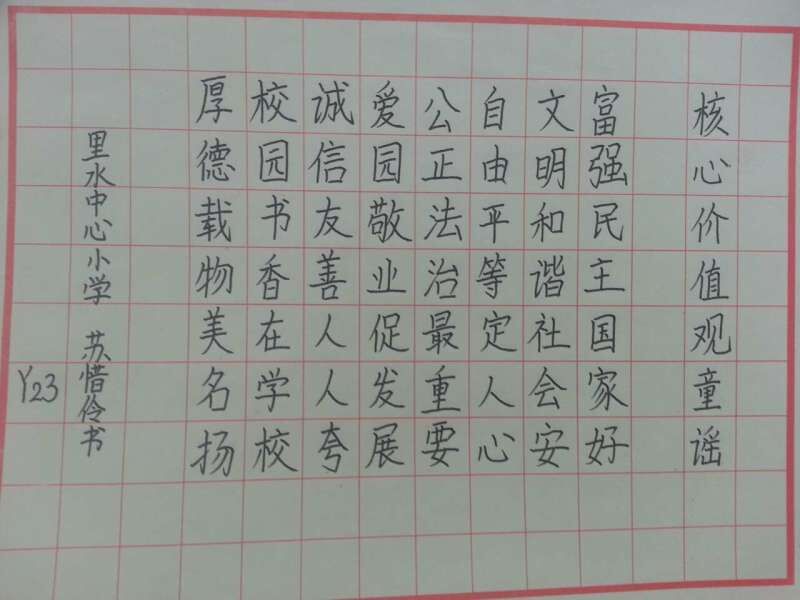 核心价值观童谣
富强民主国家好
文明和谐社会安
自由平等定人心
公正法治最重要
爱园敬业促发展
诚信友善人人夸
校园书香在学校
厚德载物美名扬
里水中心小学 苏惜伶书
Y23